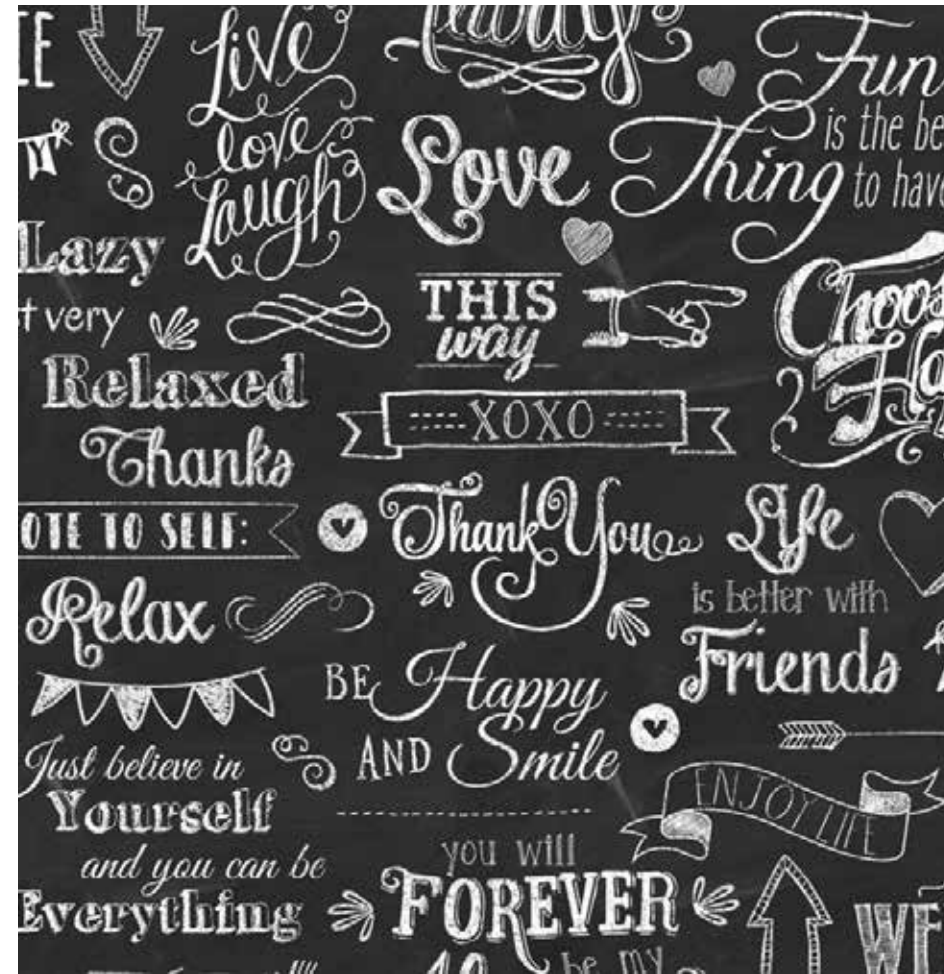 Live
love
Laugh
Always
Fun
is the be
Thing
to have
Love
Lazy
t very
Relaxed
THIS
way
Choos
Ha
XOXO
Thanks
OTE TO SELF:
Relax
Thank You
Life
is better with
Friends
BE Happy
AND Smile
Just believe in
Yourself
and you can be
Everything
ENJOY LIFE
you will
FOREVER
be my
WE